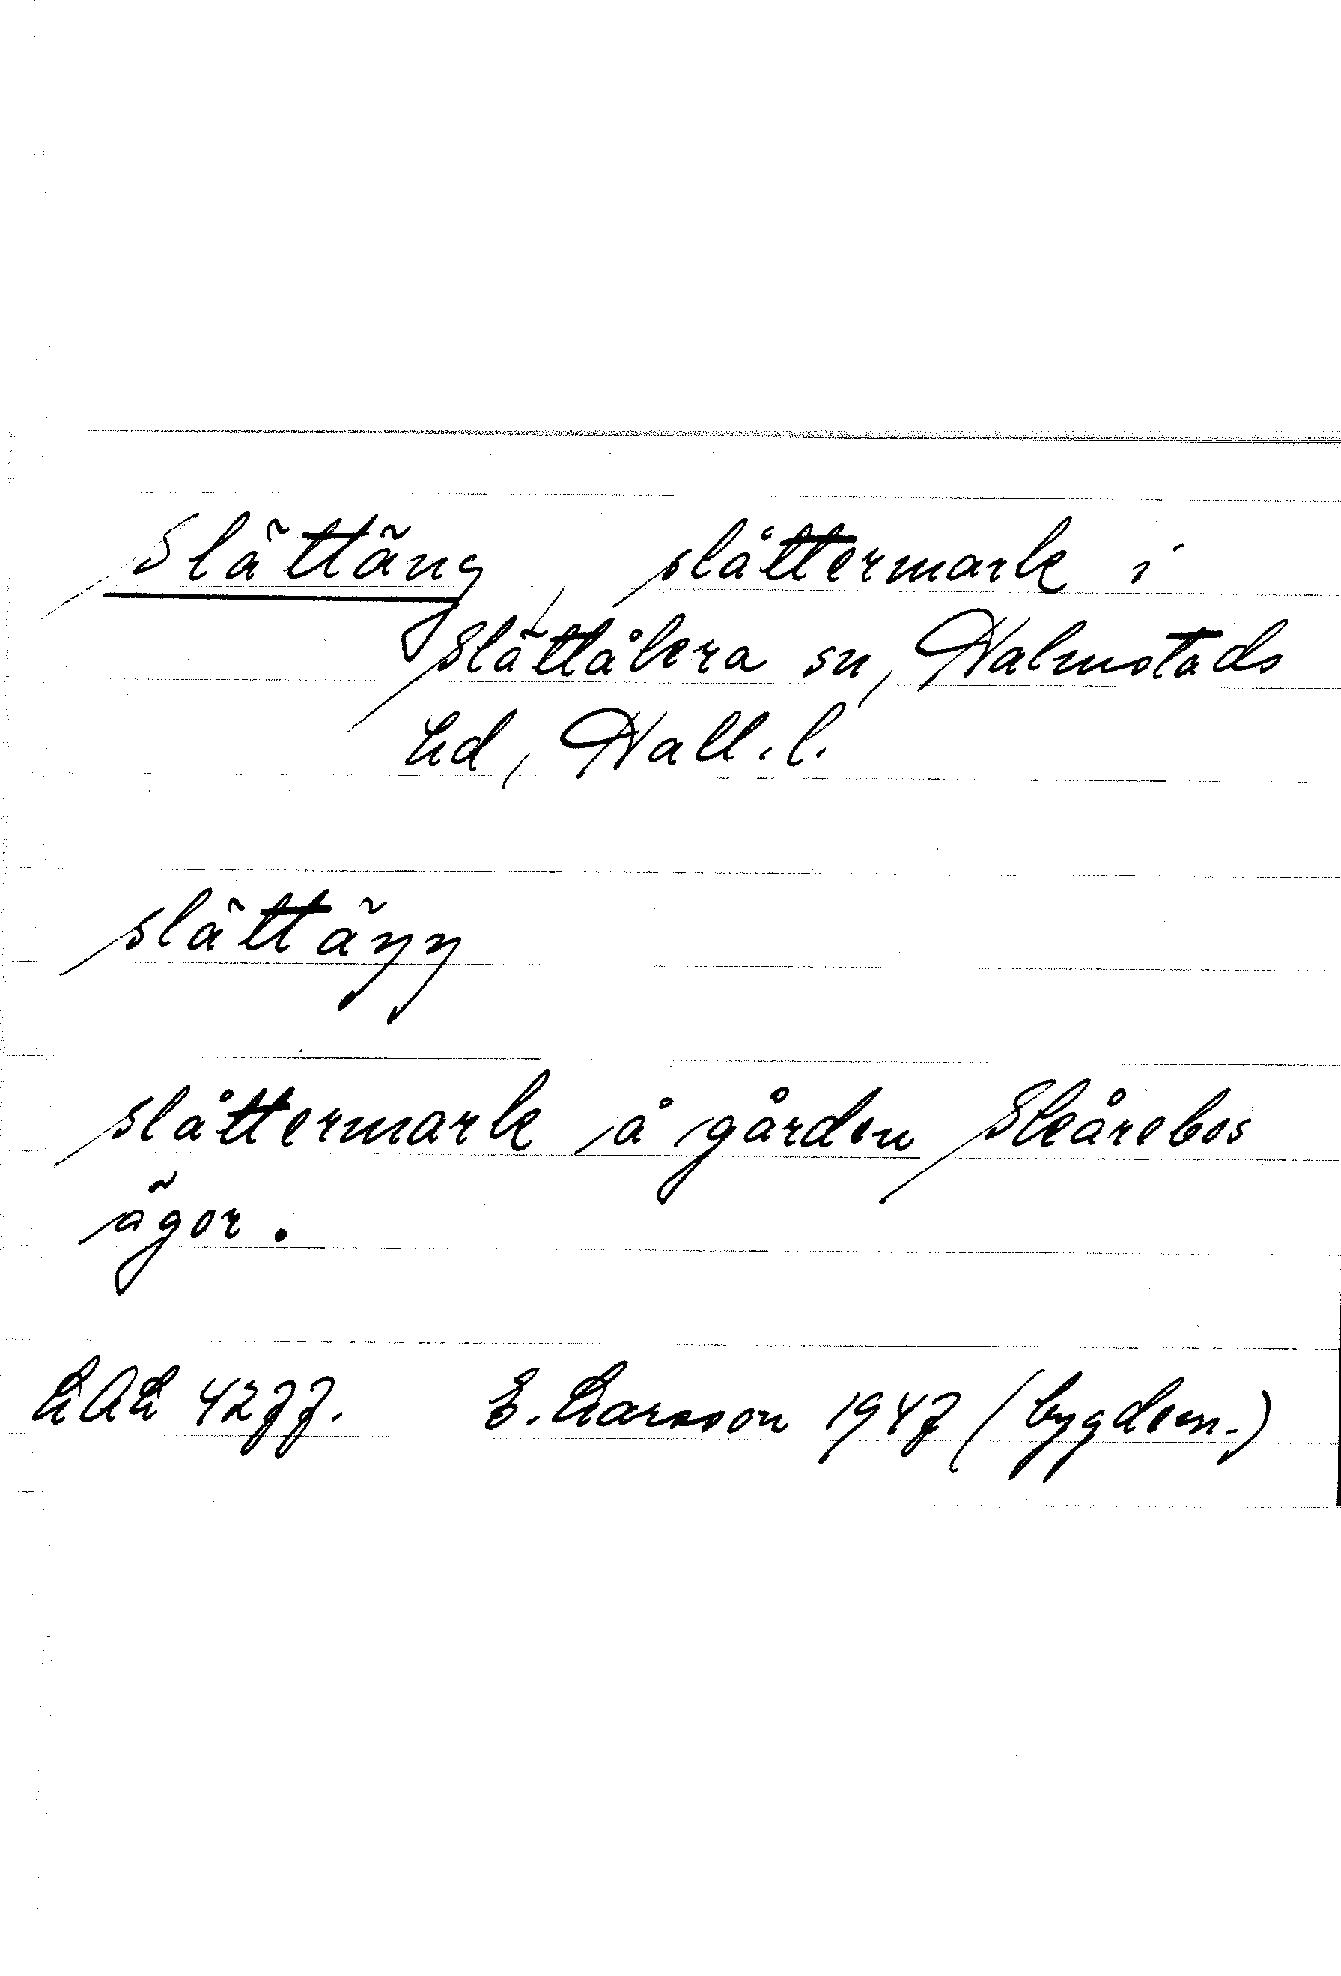 Slättäng, slåttermark i
Slättåkra sn, Halmstads
hd, Hall. l.
slättäŋŋ
slåttermark å gården Skårebos
ägor.
LAL 4277. E. Larsson 1947 (bygdem.)